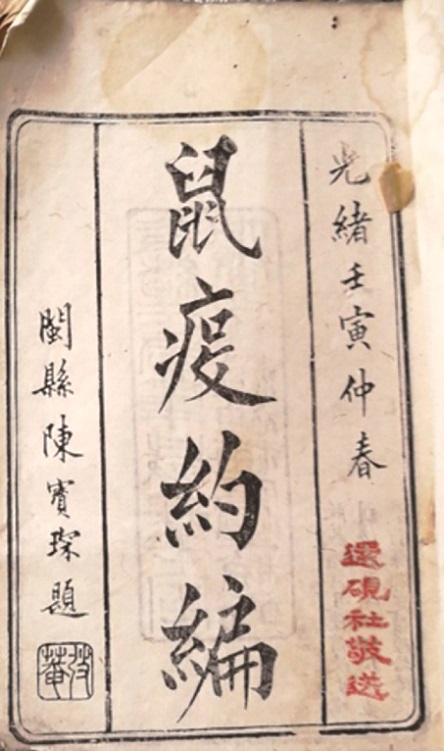 光緒壬寅仲春
還硯社敬送
鼠疫約編
閩縣陳寶琛題
弢菴